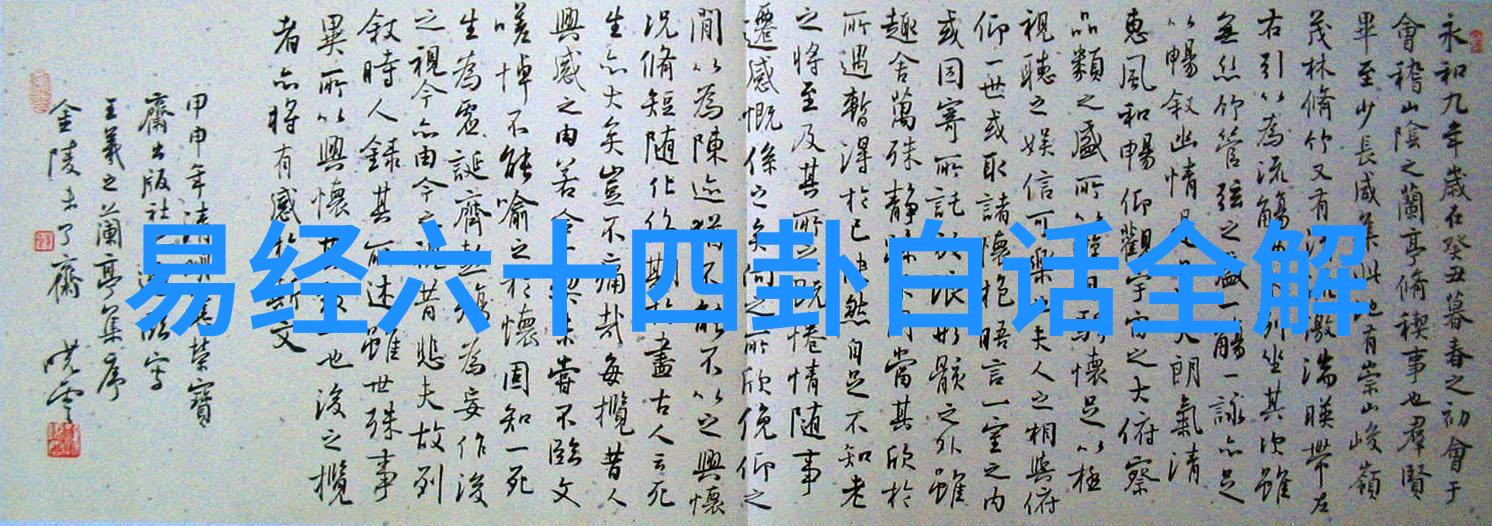 易经六十四卦白话全解
永和九年歲在癸丑暮春之初會于
會稽山陰之蘭亭脩稧事也羣賢
畢至少長咸集此地有崇山峻嶺
茂林脩竹又有清流激湍暎帶左
右引以為流觴曲水列坐其次雖
無絲竹管弦之盛一觴一詠亦足
以暢叙幽情是日也天朗氣清
惠風和暢仰觀宇宙之大俯察
品類之盛所以遊目騁懷足以極
視聽之娛信可樂也夫人之相與俯
仰一世或取諸懷抱晤言一室之内
或因寄所託放浪形骸之外雖
趣舍萬殊静躁不同當其欣於
所遇暫得於己快然自足不知老
之將至及其所之既惓情随事
遷感慨係之矣向之所欣俛仰之
間以為陳迹猶不能不以之興懷
況脩短随化終期於盡古人云死
生亦大矣豈不痛哉每攬昔人
興感之由若合一契未嘗不臨文
嗟悼不能喻之於懷固知一死
生為虚誕齊彭殤為妄作後
之視今亦由今之視昔悲夫故列
叙時人録其所述雖世殊事
異所以興懷其致一也後之攬
者亦將有感於斯文
甲申年清明 榮寶
齋出版社 寫
王羲之蘭亭集序
金陵未了齋